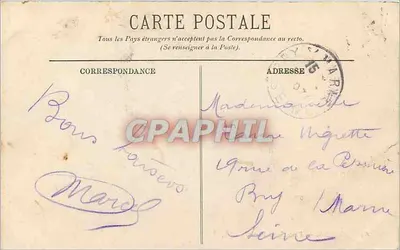 CARTE POSTALE
Tous les Pays étrangers n'acceptent pas la Correspondance au recto.
(Se renseigner à la Poste).
CORRESPONDANCE
ADRESSE
15
CPARAMA
Bons baisers
Marcel
Mademoiselle
19 rue de la
Bry Marne
Seine